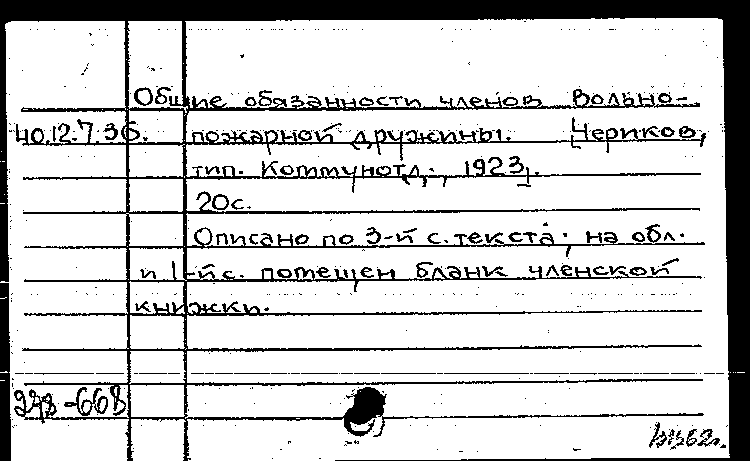 Общие обязанности членов Вольно-
40.12.7.36. пожарной дружины. [Чериков,
тип. Коммунотд., 1923].
20с.
Описано по 3-й с. текста; на обл.
и 1-й с. помещен бланк членской
книжки.
278-668